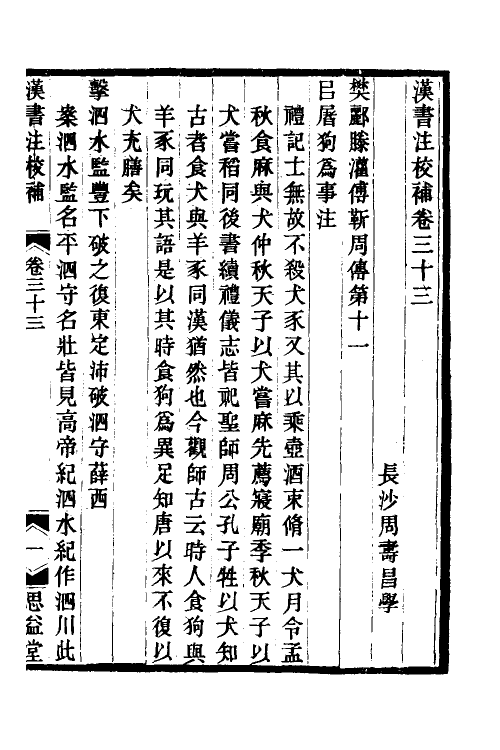 漢書注校補卷三十三
長沙周壽昌學
樊酈滕灌傅靳周傳第十一
㠯屠狗爲事注
禮記士無故不殺犬豕又其以乘壺酒束脩一犬月令孟
秋食麻與犬仲秋天子以犬嘗麻先薦寢廟季秋天子以
犬嘗稻同後書續禮儀志皆祀聖師周公孔子牲以犬知
古者食犬與羊豕同漢猶然也今觀師古云時人食狗與
羊豕同玩其語是以其時食狗爲異足知唐以來不復以
犬充膳矣
擊泗水監豐下破之復東定沛破泗守薛西
案泗水監名平泗守名壯皆見高帝紀泗水紀作泗川此
漢書注校補 卷三十三 一 思益堂